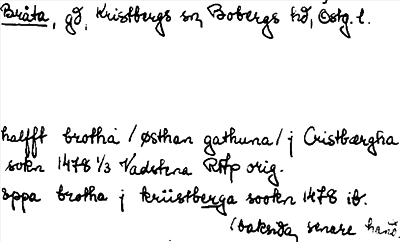 Bråta, gd, Kristbergs sn, Bobergs hd, Östg. l.
halfft brotha /østhan gathuna/ j Cristbærgha
sokn 1478 1/3 Vadstena RAp orig.
oppa brotha j kriistberga sookn 1478 ib.
(baksida, senare hand.